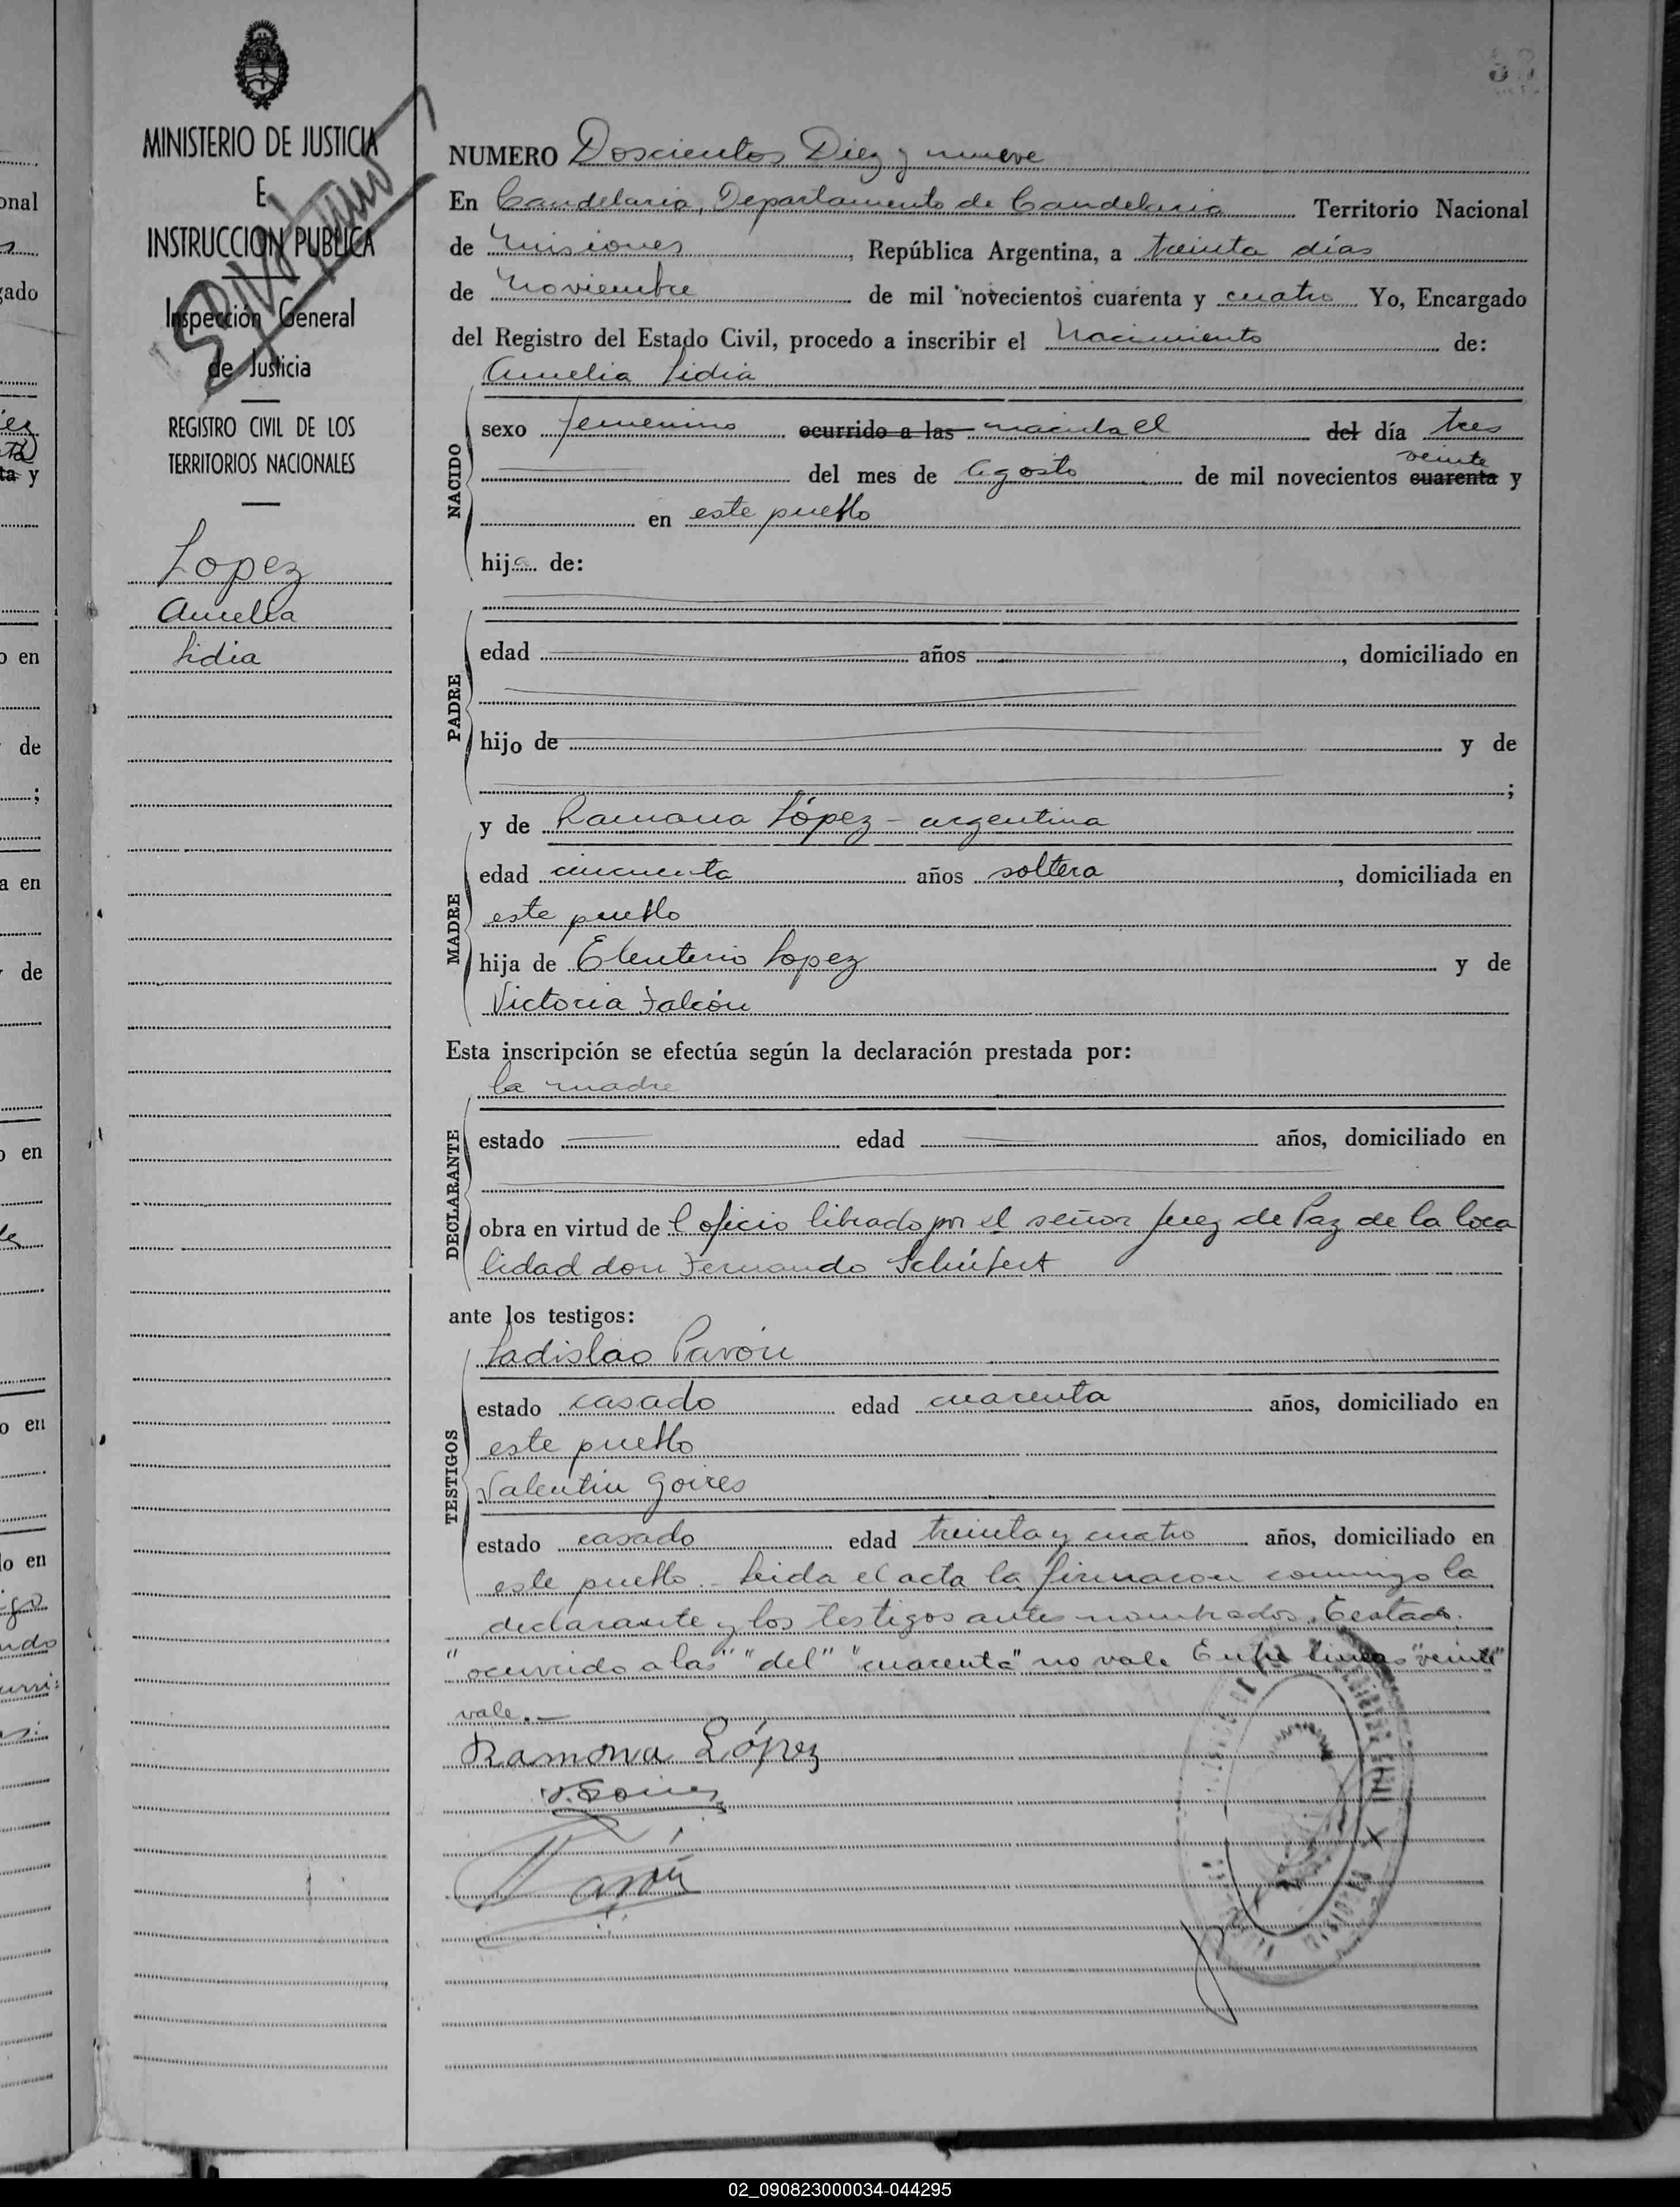 MINISTERIO DE JUSTICIA
E
INSTRUCCION PUBLICA
Inspección General
de Justicia
REGISTRO CIVIL DE LOS
TERRITORIOS NACIONALES
Lopez
Amelia
Lidia
NUMERO Doscientos Diez y nueve
En Candelaria, Departamento de Candelaria Territorio Nacional
de Misiones, República Argentina, a treinta días
de Noviembre de mil novecientos cuarenta y cuatro Yo, Encargado
del Registro del Estado Civil, procedo a inscribir el Nacimiento de:
Amelia Lidia
NACIDO
sexo femenino ocurrido a las nacida el del día tres
veinte
del mes de Agosto de mil novecientos cuarenta y
en este pueblo
hija de:
PADRE
edad años, domiciliado en
hijo de y de
;
y de Ramona López - argentina
MADRE
edad cincuenta años soltera, domiciliada en
este pueblo
hija de Eleuterio Lopez y de
Victoria Falcón
Esta inscripción se efectúa según la declaración prestada por:
la madre
DECLARANTE
estado edad años, domiciliado en
obra en virtud del oficio librado por el señor Juez de Paz de la loca
lidad don Fernando
ante los testigos:
Ladislao Pavón
TESTIGOS
estado casado edad cuarenta años, domiciliado en
este pueblo
Valentin Goires
estado casado edad treinta y cuatro años, domiciliado en
este pueblo.- Leida el acta la firmaron conmigo la
declarante y los testigos antes nombrados. Testado:
"ocurrido a las" "del" "cuarenta" no vale Entre lineas "veinte"
vale.-
Ramona López
V. Goires
Pavón
02_090823000034-044295